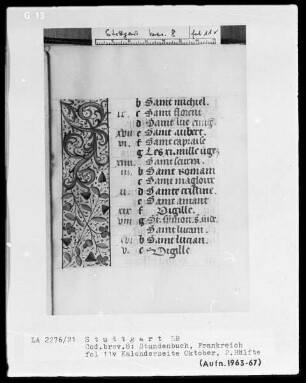 G 13
Stuttgart brev. 8 fol 11v
b Saint michiel.
ii. c Saint florent
d Saint luc euvg.
xvii e Saint aubert.
vi f Saint capraise
g Les xi. mille v'ge
xiiii. Saint seurin.
iii b Saint Romain
c Saint magloire
xi d Sainte cristine.
e Saint amant
xix f Vigille.
viii g St. simon s. iude.
Saint lucain.
xvi b Saint lucian.
v. c Vigille
LA 2276/21 Stuttgart LB
Cod.brev.8: Stundenbuch, Frankreich
fol 11v Kalenderseite Oktober, 2.Hälfte
(Aufn.1963-67)